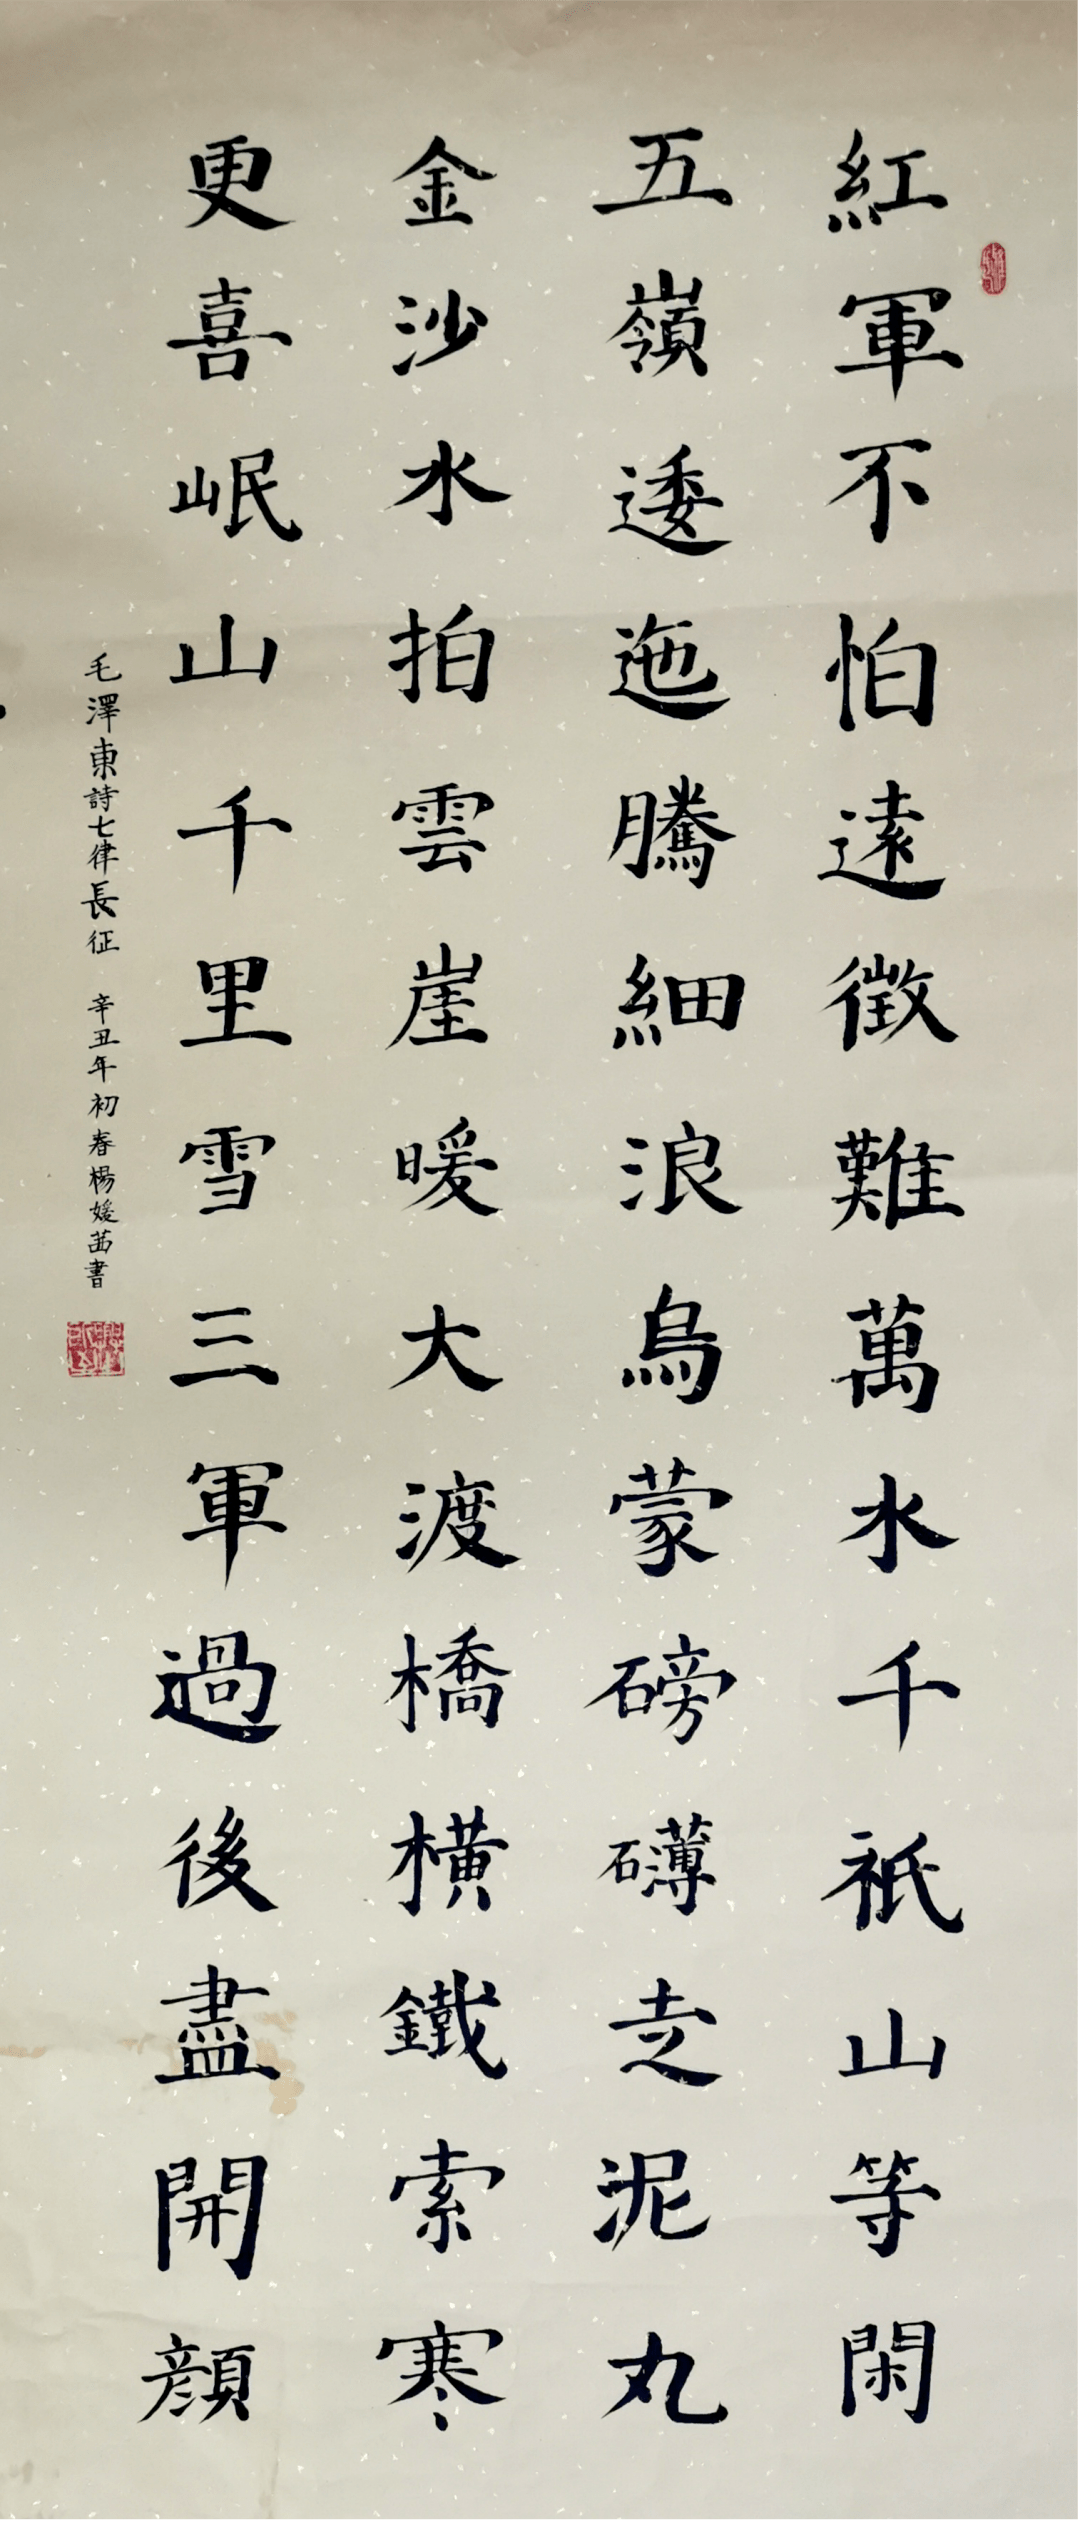 紅軍不怕遠徵難萬水千祇山等閑
五嶺逶迤騰細浪烏蒙磅礴走泥丸
金沙水拍雲崖暖大渡橋橫鐵索寒
更喜岷山千里雪三軍過後盡開顏
毛澤東詩七律長征 辛丑年初春楊媛茜書